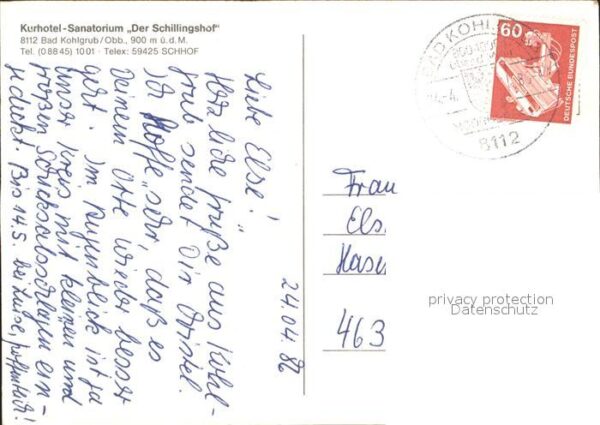 Kurhotel-Sanatorium „Der Schillingshof"
8112 Bad Kohlgrub/Obb., 900 m ü.d.M.
Tel. (08845) 1001 · Telex: 59425 SCHHOF
24.04.82
Liebe Else!
Herzliche Grüße aus Kohl-
grub sendet Dir
Ich hoffe sehr, daß es
Deinem Otto wieder besser
geht. Im ist ja
unser Kreis mit kleinen und
großen Schicksalsschlägen ein-
gedeckt. Bis 14.5. bei Luise, hoffentlich!
Frau
Els
Hase
463
60
DEUTSCHE BUNDESPOST
BAD KOHLG
8112
privacy protection
Datenschutz